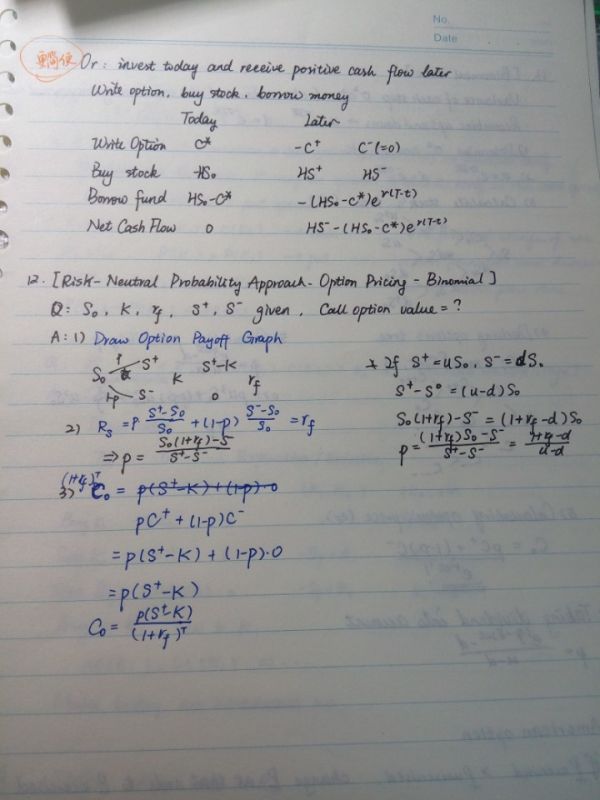 No.
Date
更简便
Or: invest today and receive positive cash flow later
Write option, buy stock, borrow money
Today Later
Write Option C* -C⁺ C⁻(=0)
Buy stock -HS₀ HS⁺ HS⁻
Borrow fund HS₀-C* -(HS₀-C*)e^r(T-t)
Net Cash Flow 0 HS⁻-(HS₀-C*)e^r(T-t)
12. [Risk-Neutral Probability Approach-Option Pricing-Binomial]
Q: S₀, K, rf, S⁺, S⁻ given, Call option value=?
A: 1) Draw Option Payoff Graph
P S⁺ S⁺-K
S₀ K rf
1-P S⁻ 0
* If S⁺=uS₀, S⁻=dS₀
S⁺-S⁰=(u-d)S₀
S₀(1+rf)-S⁻=(1+rf-d)S₀
p=((1+rf)S₀-S⁻)/(S⁺-S⁻)=(1+rf-d)/(u-d)
2) Rs=P (S⁺-S₀)/S₀+(1-p) (S⁻-S₀)/S₀=rf
⇒p=(S₀(1+rf)-S⁻)/(S⁺-S⁻)
3) (1+rf)^T C₀ = p(S⁺-K)+(1-p)·0
pC⁺+(1-p)C⁻
=p(S⁺-K)+(1-p)·0
=p(S⁺-K)
C₀=p(S⁺-K)/(1+rf)^T